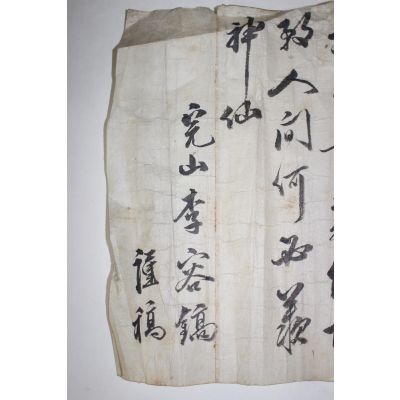 致人間何必羨
神仙
完山李容鎬
謹稿